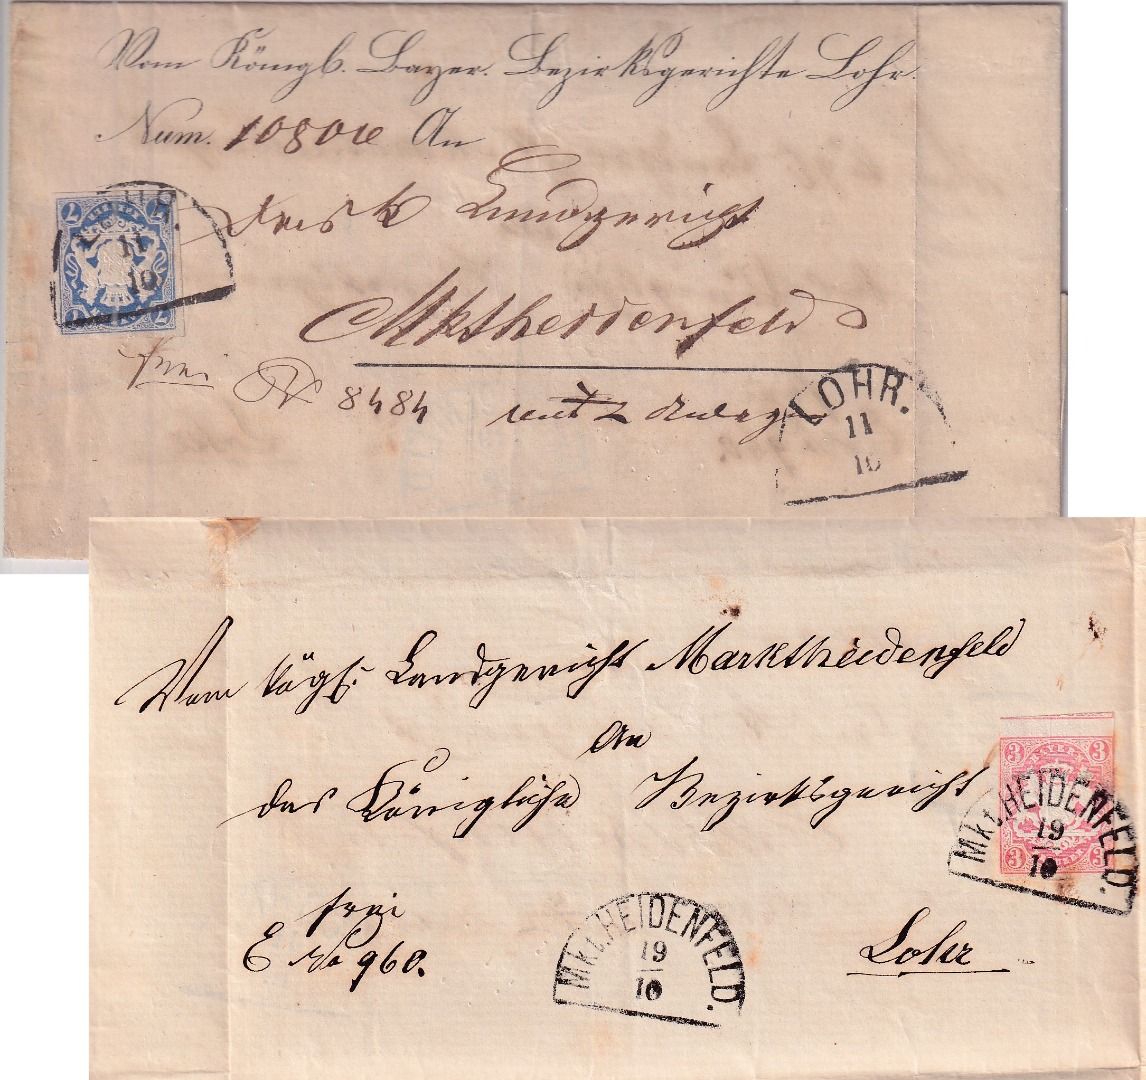 Vom Königl. Bayer. Bezirksgerichte Lohr.
Num. 10806 An
das k Landgericht
Mktheidenfeld
frei
N 8484
mit 2 Anlagen
7 7
LOHR.
11
10
LOHR.
11
10
Vom kögl: Landgericht Marktheidenfeld
An
das Königliche Bezirksgericht
Lohr
frei
E No 960.
3 3
3 3
Mkt.HEIDENFELD.
19
10
Mkt.HEIDENFELD.
19
10